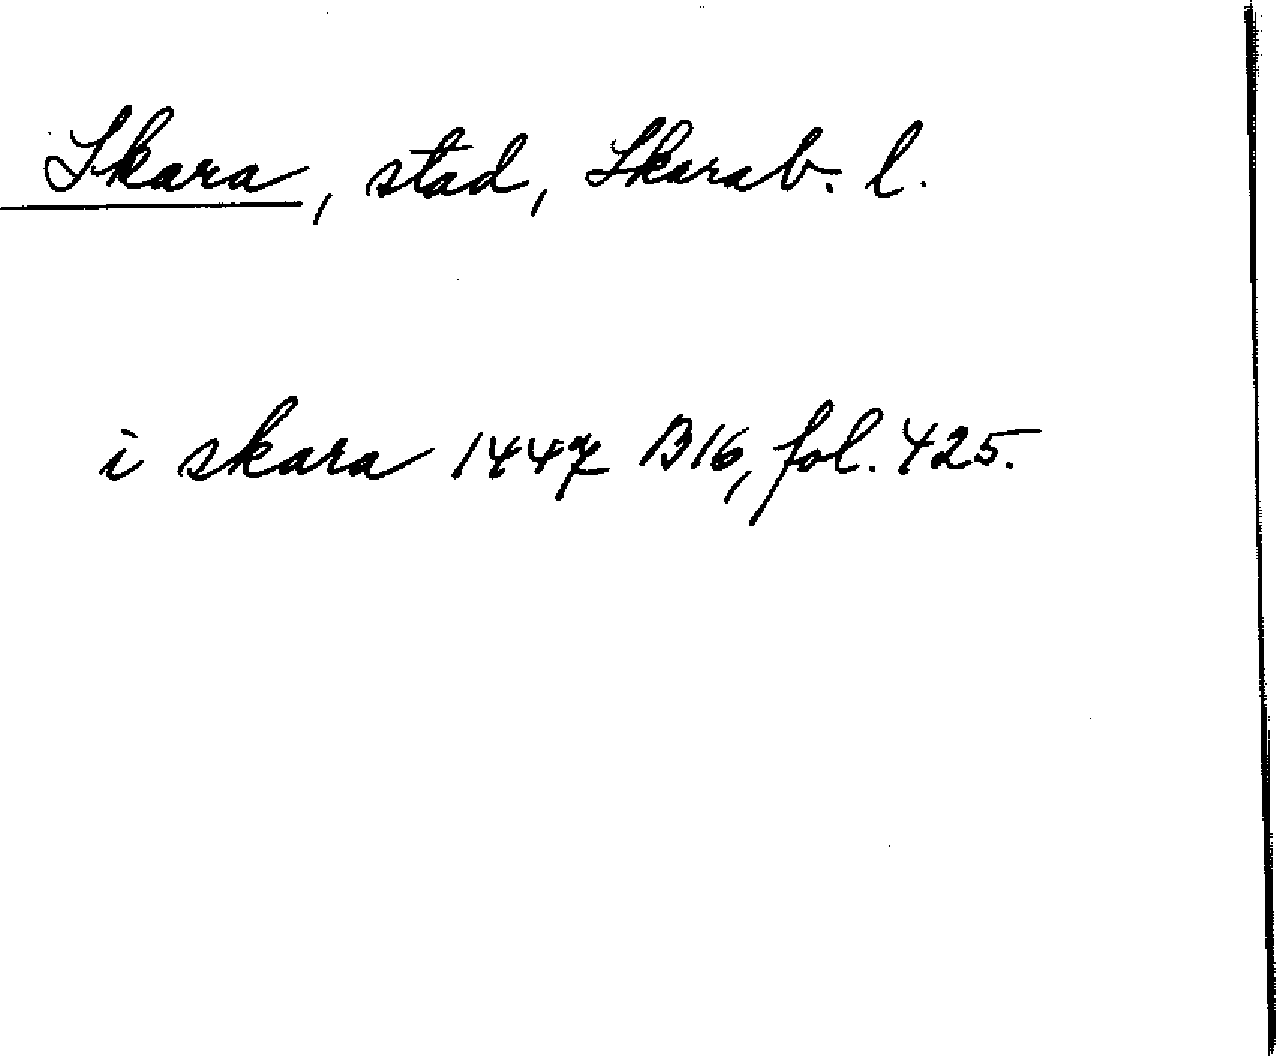 Skara, stad, Skarab. l.
i skara 1447 B16, fol. 425.